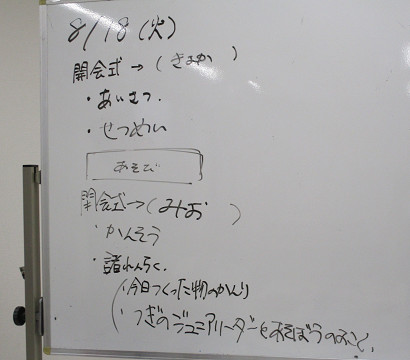 8/18(火)
開会式→(きょか)
・あいさつ
・せつめい
あそび
閉会式→(みお)
・かんそう
・諸れんらく
・今日つくった物のかんり
・つぎのジュニアリーダーとあそぼうのこと、